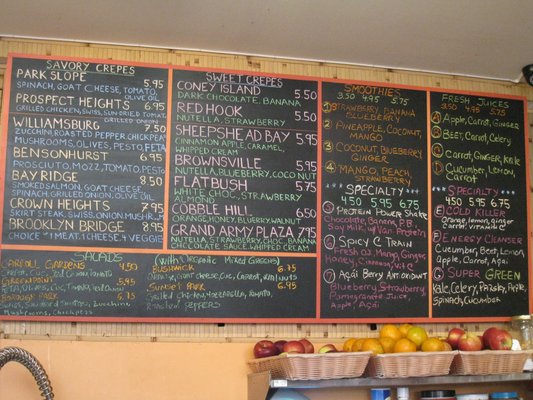 SAVORY CREPES
PARK SLOPE 5.95
SPINACH, GOAT CHEESE, TOMATO,
OLIVE OIL
PROSPECT HEIGHTS 6.95
GRILLED CHICKEN, SWISS, SUN DRIED TOMATO
WILLIAMSBURG 7.50
ZUCCHINI, ROASTED PEPPER, CHICKPEA
MUSHROOMS, OLIVES, PESTO, FETA
BENSONHURST 6.95
PROSCIUTTO, MOZZ, TOMATO, PESTO
BAY RIDGE 8.50
SMOKED SALMON, GOAT CHEESE,
SPINACH, GRILLED ONION, OLIVE OIL
CROWN HEIGHTS 7.95
SKIRT STEAK, SWISS, ONION, MUSHR.
BROOKLYN BRIDGE 8.95
CHOICE 1 MEAT, 1 CHEESE, 4 VEGGIE
SWEET CREPES
CONEY ISLAND 5.50
DARK CHOCOLATE, BANANA
RED HOOK 5.50
NUTELLA, STRAWBERRY
SHEEPSHEAD BAY 5.95
CINNAMON APPLE, CARAMEL,
WHIPPED CREAM
BROWNSVILLE 5.95
NUTELLA, BLUEBERRY, COCONUT
FLATBUSH 5.75
WHITE CHOC, STRAWBERRY
ALMOND
COBBLE HILL 6.50
ORANGE, HONEY, BLUEBERRY, WALNUT
GRAND ARMY PLAZA 7.95
NUTELLA, STRAWB, CHOC, BANANA
CHOCOLATE ICE CREAM, WHIPPED CREAM
SMOOTHIES
3.50 4.95 5.75
1 STRAWBERRY, BANANA
BLUEBERRY
2 PINEAPPLE, COCONUT,
MANGO
3 COCONUT, BLUEBERRY
GINGER
4 MANGO, PEACH,
STRAWBERRY
*SPECIALTY*
4.50 5.95 6.75
5 PROTEIN POWER SHAKE
Chocolate, Banana, P.B.
Soy Milk, w/ Van. Protein
6 SPICY C TRAIN
Fresh O.J, Mango, Ginger
Honey, Cinnamon
7 AÇAI BERRY ANTIOXIDANT
Blueberry, Strawberry
Pomegranate Juice,
Apple, Açai
FRESH JUICES
3.50 4.95 5.75
A Apple, Carrot,
Ginger
B Beet, Carrot, Celery
C Carrot, Ginger, Kale
D Cucumber, Lemon,
Carrot
*SPECIALTY*
4.50 5.95 6.75
E COLD KILLER
Orange, Lemon, Ginger
Carrot, Vitamin C
F ENERGY CLEANSER
Cucumber, Beet, Lemon
Apple, Carrot, Açai
G SUPER GREEN
Kale, Celery, Parsley,
Spinach, Cucumber
SALADS (With ORGANIC MIXED GREENS)
CARROLL GARDENS 4.50
GREENPOINT 5.95
BOROUGH PARK 6.25
Mushrooms, Chickpeas
BUSHWICK 6.75
SUNSET PARK 6.95
Grilled Chicken, Mozzarella, Tomato,
PEPPERS